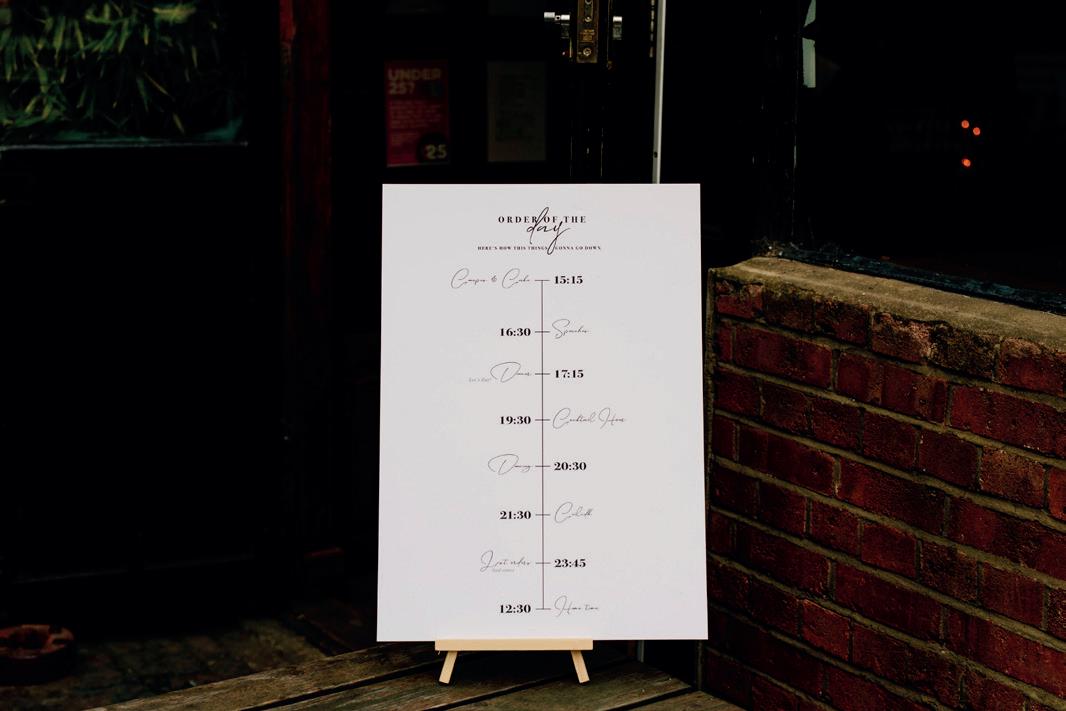 UNDER
25?
25
ORDER OF THE
day
HERE'S HOW THIS THINGS GONNA GO DOWN
Canapes & Cake 15:15
16:30 Speeches
Dinner 17:15
19:30 Cocktail Hour
Dancing 20:30
21:30 Ceilidh
Last orders 23:45
12:30 Home time